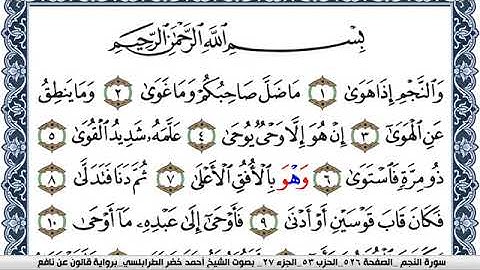 بِسْمِ اللَّهِ الرَّحْمَٰنِ الرَّحِيمِ
وَالنَّجْمِ إِذَا هَوَىٰ ١ مَا ضَلَّ صَاحِبُكُمْ وَمَا غَوَىٰ ٢ وَمَا يَنطِقُ
عَنِ الْهَوَىٰ ٣ إِنْ هُوَ إِلَّا وَحْيٌ يُوحَىٰ ٤ عَلَّمَهُ شَدِيدُ الْقُوَىٰ ٥
ذُو مِرَّةٍ فَاسْتَوَىٰ ٦ وَهْوَ بِالْأُفُقِ الْأَعْلَىٰ ٧ ثُمَّ دَنَا فَتَدَلَّىٰ ٨
فَكَانَ قَابَ قَوْسَيْنِ أَوْ أَدْنَىٰ ٩ فَأَوْحَىٰ إِلَىٰ عَبْدِهِ مَا أَوْحَىٰ ١٠
سورة النجم _الصفحة ٥٢٦ _الحزب ٥٣ _الجزء ٢٧ _ بصوت الشيخ أحمد خضر الطرابلسي _برواية قالون عن نافع